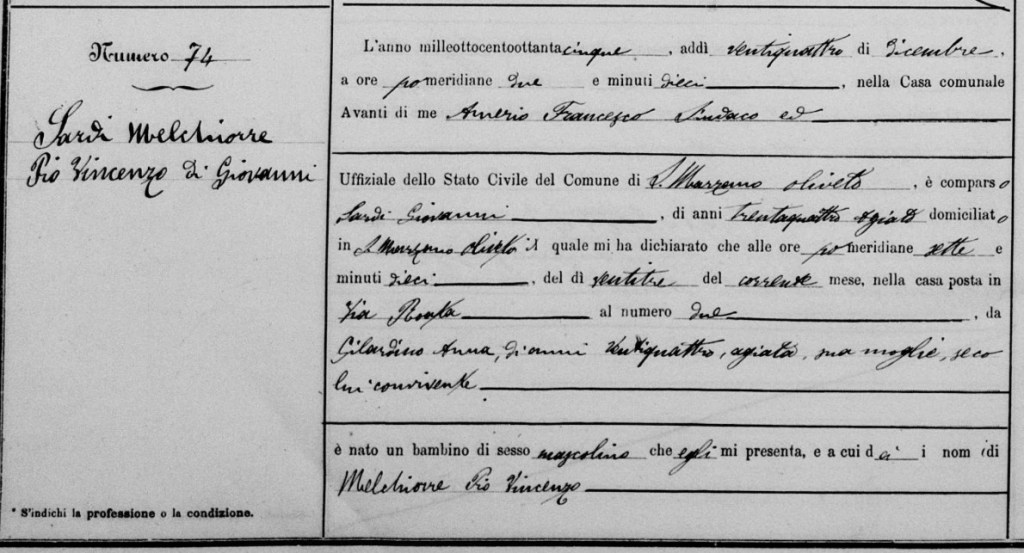 Numero 74
Sardi Melchiorre
Pio Vincenzo di Giovanni
* S'indichi la professione o la condizione.
L'anno milleottocentoottantacinque, addì ventiquattro di dicembre,
a ore pomeridiane due e minuti dieci, nella Casa comunale
Avanti di me Amerio Francesco Sindaco ed
Uffiziale dello Stato Civile del Comune di S. Marzano oliveto, è comparso
Sardi Giovanni, di anni trentaquattro agiato domiciliato
in S. Marzano oliveto il quale mi ha dichiarato che alle ore pomeridiane sette e
minuti dieci, del dì ventitre del corrente mese, nella casa posta in
Via al numero due, da
Gilardino Anna, di anni ventiquattro, agiata, sua moglie, seco
lui convivente
è nato un bambino di sesso mascolino che egli mi presenta, e a cui dà i nomi di
Melchiorre Pio Vincenzo